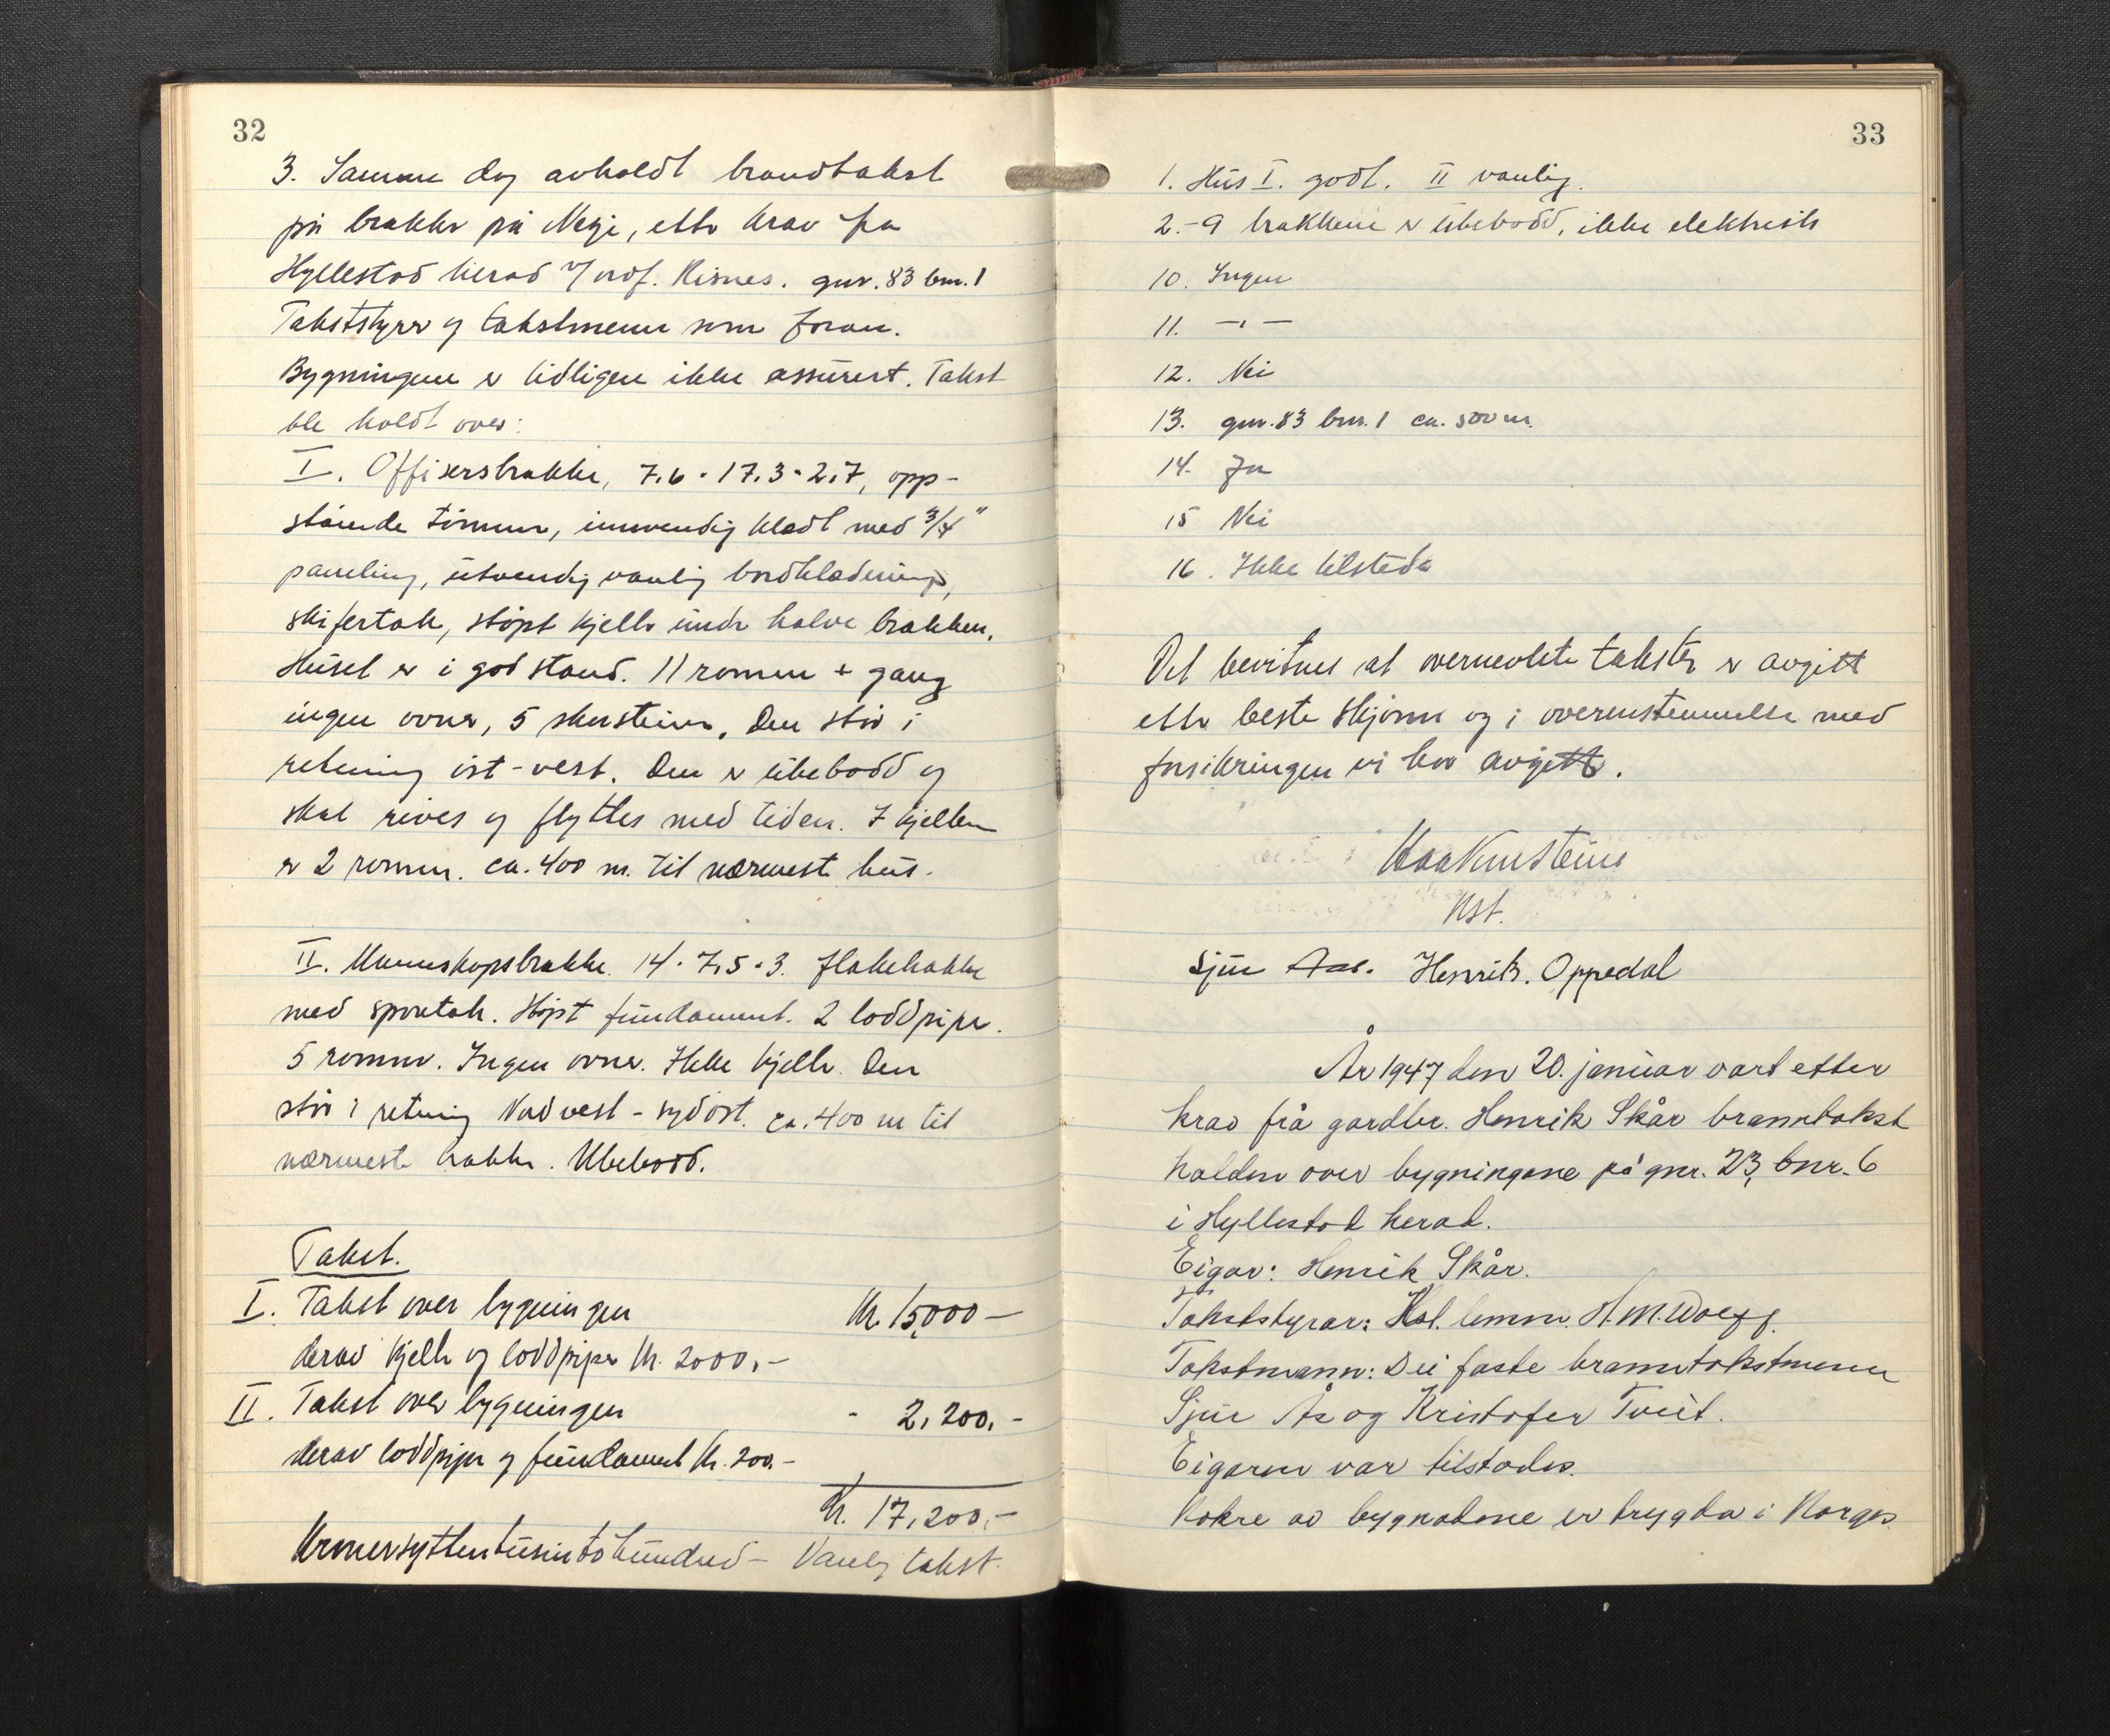 32
3. Samme dag avholdt brandtakst
på brakker på Nagi, etter krav fra
Hyllestad herad v/ ordf. Risnes. gnr. 83 bnr. 1
Takststyrer og takstmenn som foran.
Bygningene er tidligere ikke assurert. Takst
ble holdt over:
I. Offisersbrakke, 7.6 · 17.3 · 2.7, opp-
stående tømmer, innvendig kledt med 3/4"
paneling, utvendig vanlig bordkledning,
skifertak, støpt kjeller under halve brakken.
Huset er i god stand. 11 rommer + gang
ingen ovner, 5 skorsteiner. Den står i
retning øst-vest. Den er ubebodd og
skal rives og flyttes med tiden. I kjelleren
er 2 rommer. ca. 400 m. til nærmeste hus.
II. Mannskapsbrakke. 14 · 7,5 · 3. flakebrakke
med spontak. Støpt fundament. 2 loddpiper.
5 rommer. Ingen ovner. Ikke kjeller. Den
står i retning Nordvest - sydøst. ca. 400 m til
nærmeste brakke. Ubebodd.
Takst.
I. Takst over bygningen Kr. 15,000 —
derav kjeller og loddpiper Kr. 2000,-
II. Takst over bygningen - 2,200,-
derav loddpiper og fundament Kr. 200.-
Kr. 17,200.-
Kronersyttentusintohundred — Vanlig takst.
33
1. Hus I. godt. II vanlig.
2.-9 brakkene er ubebodd, ikke elektrisk
10. Ingen
11. —"—
12. Nei
13. gnr. 83 bnr. 1 ca. 500 m.
14. Ja
15 Nei
16. Ikke tilstede
Det bevitnes at overnevnte takster er avgitt
etter beste skjønn og i overenstemmelse med
forsikringen vi har avgitt.
Haakon Steine
Kst.
Sjur Aas. Henrik. Oppedal
År 1947 den 20. januar vart etter
krav frå gardbr. Henrik Skår branntakst
halden over bygningane på gnr. 23, bnr. 6
i Hyllestad herad.
Eigar: Henrik Skår.
Takststyrar: Kst. lensm. H. M. Wolff.
Takstmann: Dei faste branntakstmenn
Sjur Ås og Kristofer Tveit.
Eigaren var tilstades.
Nokre av bygnadene er trygda i Norges